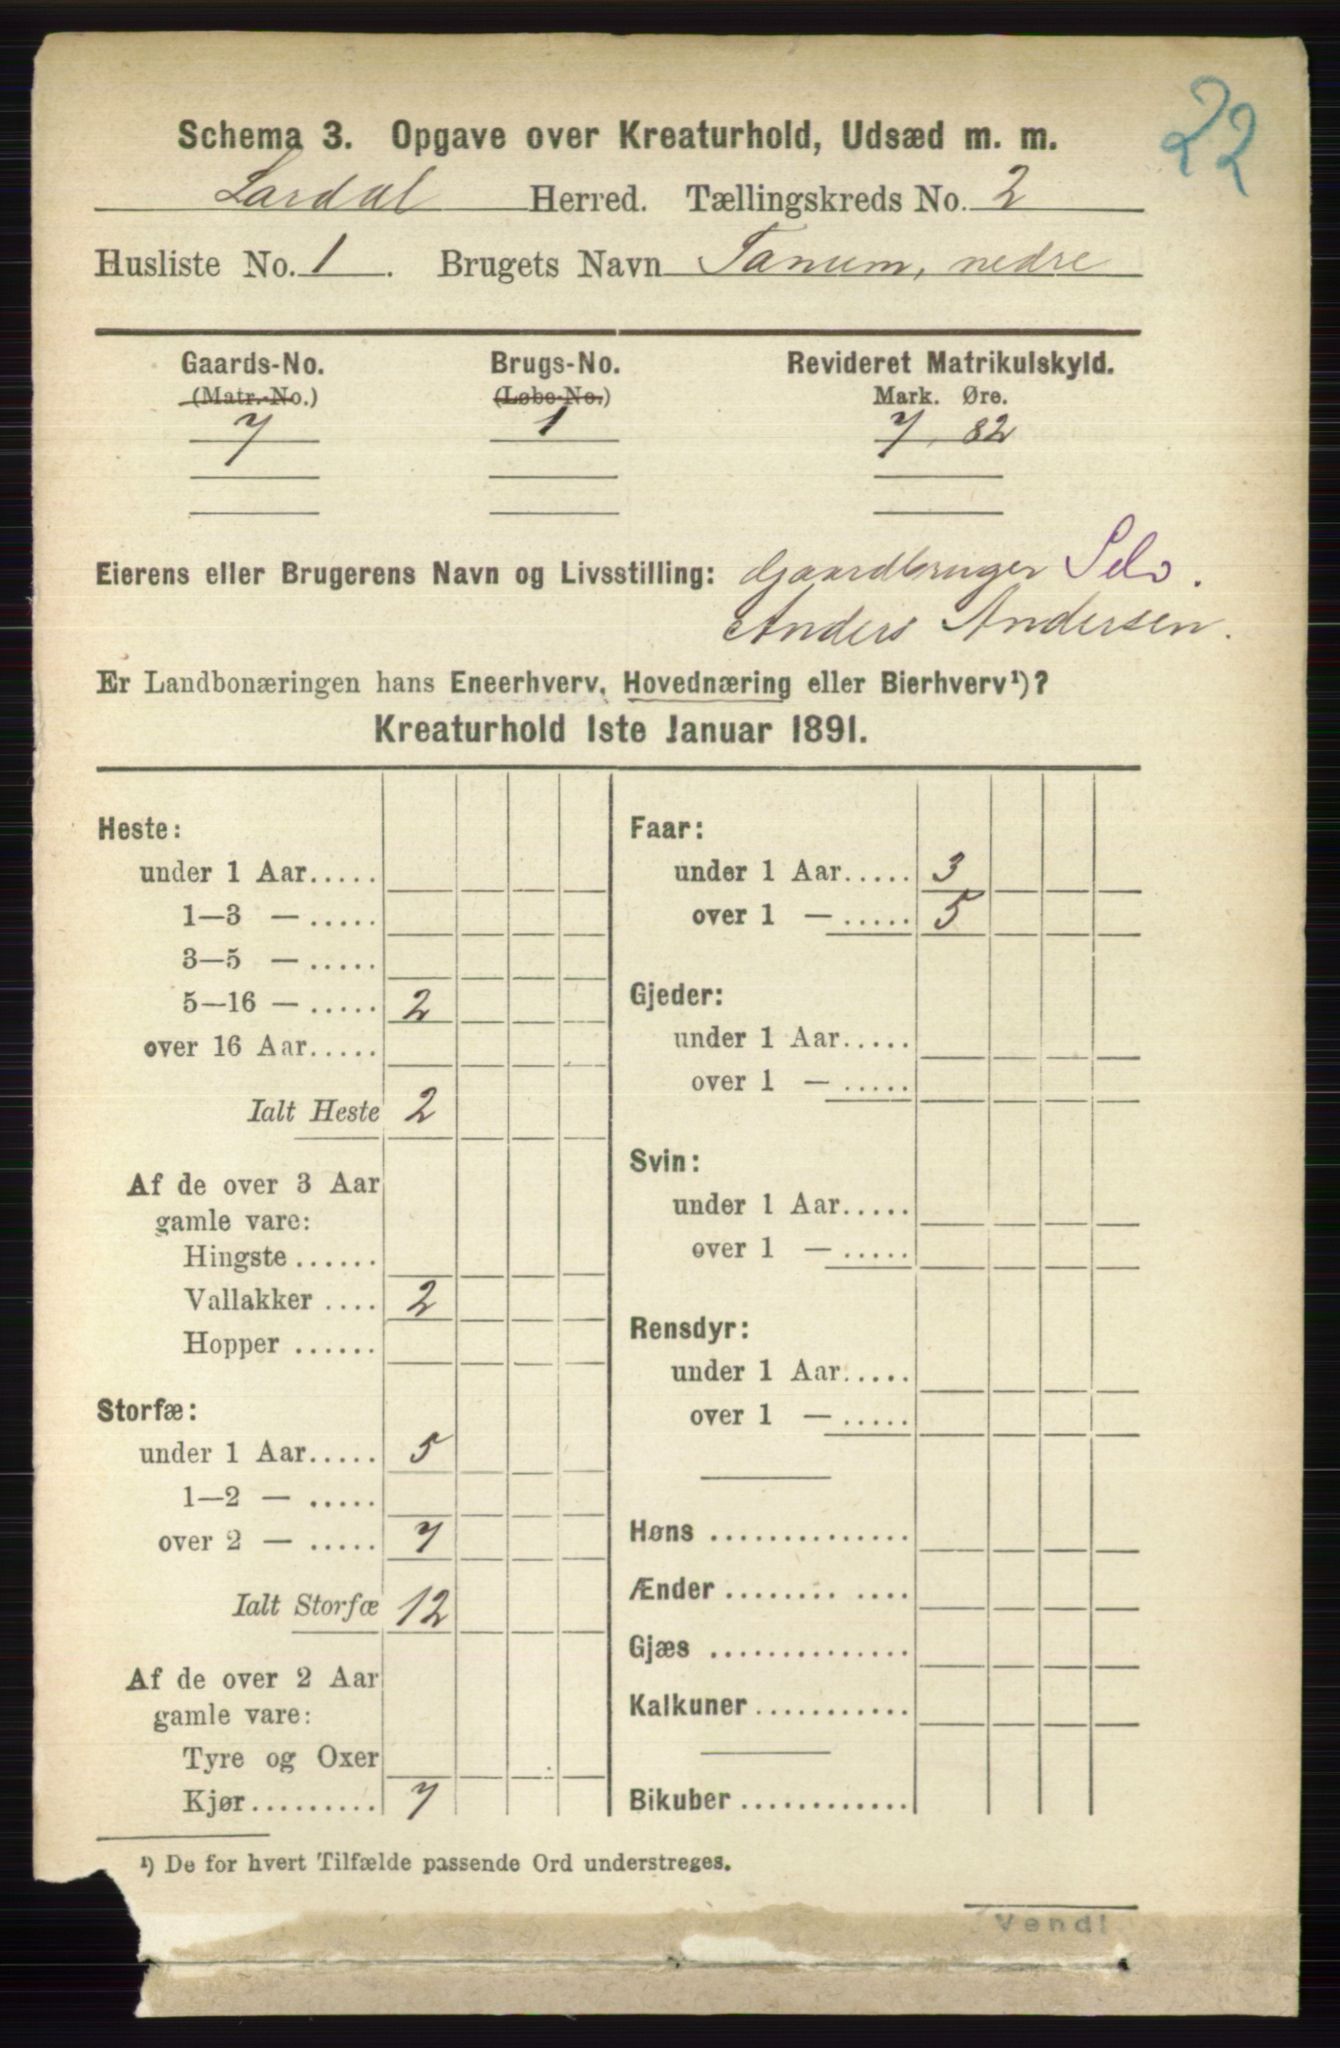 22
Schema 3. Opgave over Kreaturhold, Udsæd m. m.
Lardal Herred. Tællingskreds No. 2
Husliste No. 1. Brugets Navn Tanum, nedre
Gaards-No. Brugs-No. Revideret Matrikulskyld.
(Matr.-No.) (Løbe-No.) Mark. Øre.
7 1 7, 82
Eierens eller Brugerens Navn og Livsstilling: Gaardbruger Selv.
Anders Andersen.
Er Landbonæringen hans Eneerhverv, Hovednæring eller Bierhverv¹)?
Kreaturhold 1ste Januar 1891.
Heste:
under 1 Aar.....
1—3 — .....
3—5 — .....
5—16 — ..... 2
over 16 Aar.....
Ialt Heste 2
Af de over 3 Aar
gamle vare:
Hingste ......
Vallakker .... 2
Hopper ......
Storfæ:
under 1 Aar..... 5
1—2 — .....
over 2 — ..... 7
Ialt Storfæ 12
Af de over 2 Aar
gamle vare:
Tyre og Oxer
Kjør......... 7
Faar:
under 1 Aar..... 3
over 1 — ..... 5
Gjeder:
under 1 Aar.....
over 1 — .....
Svin:
under 1 Aar.....
over 1 — .....
Rensdyr:
under 1 Aar.....
over 1 — .....
Høns ..............
Ænder ........ ....
Gjæs ..............
Kalkuner ...........
Bikuber ............
¹) De for hvert Tilfælde passende Ord understreges.
Vend!